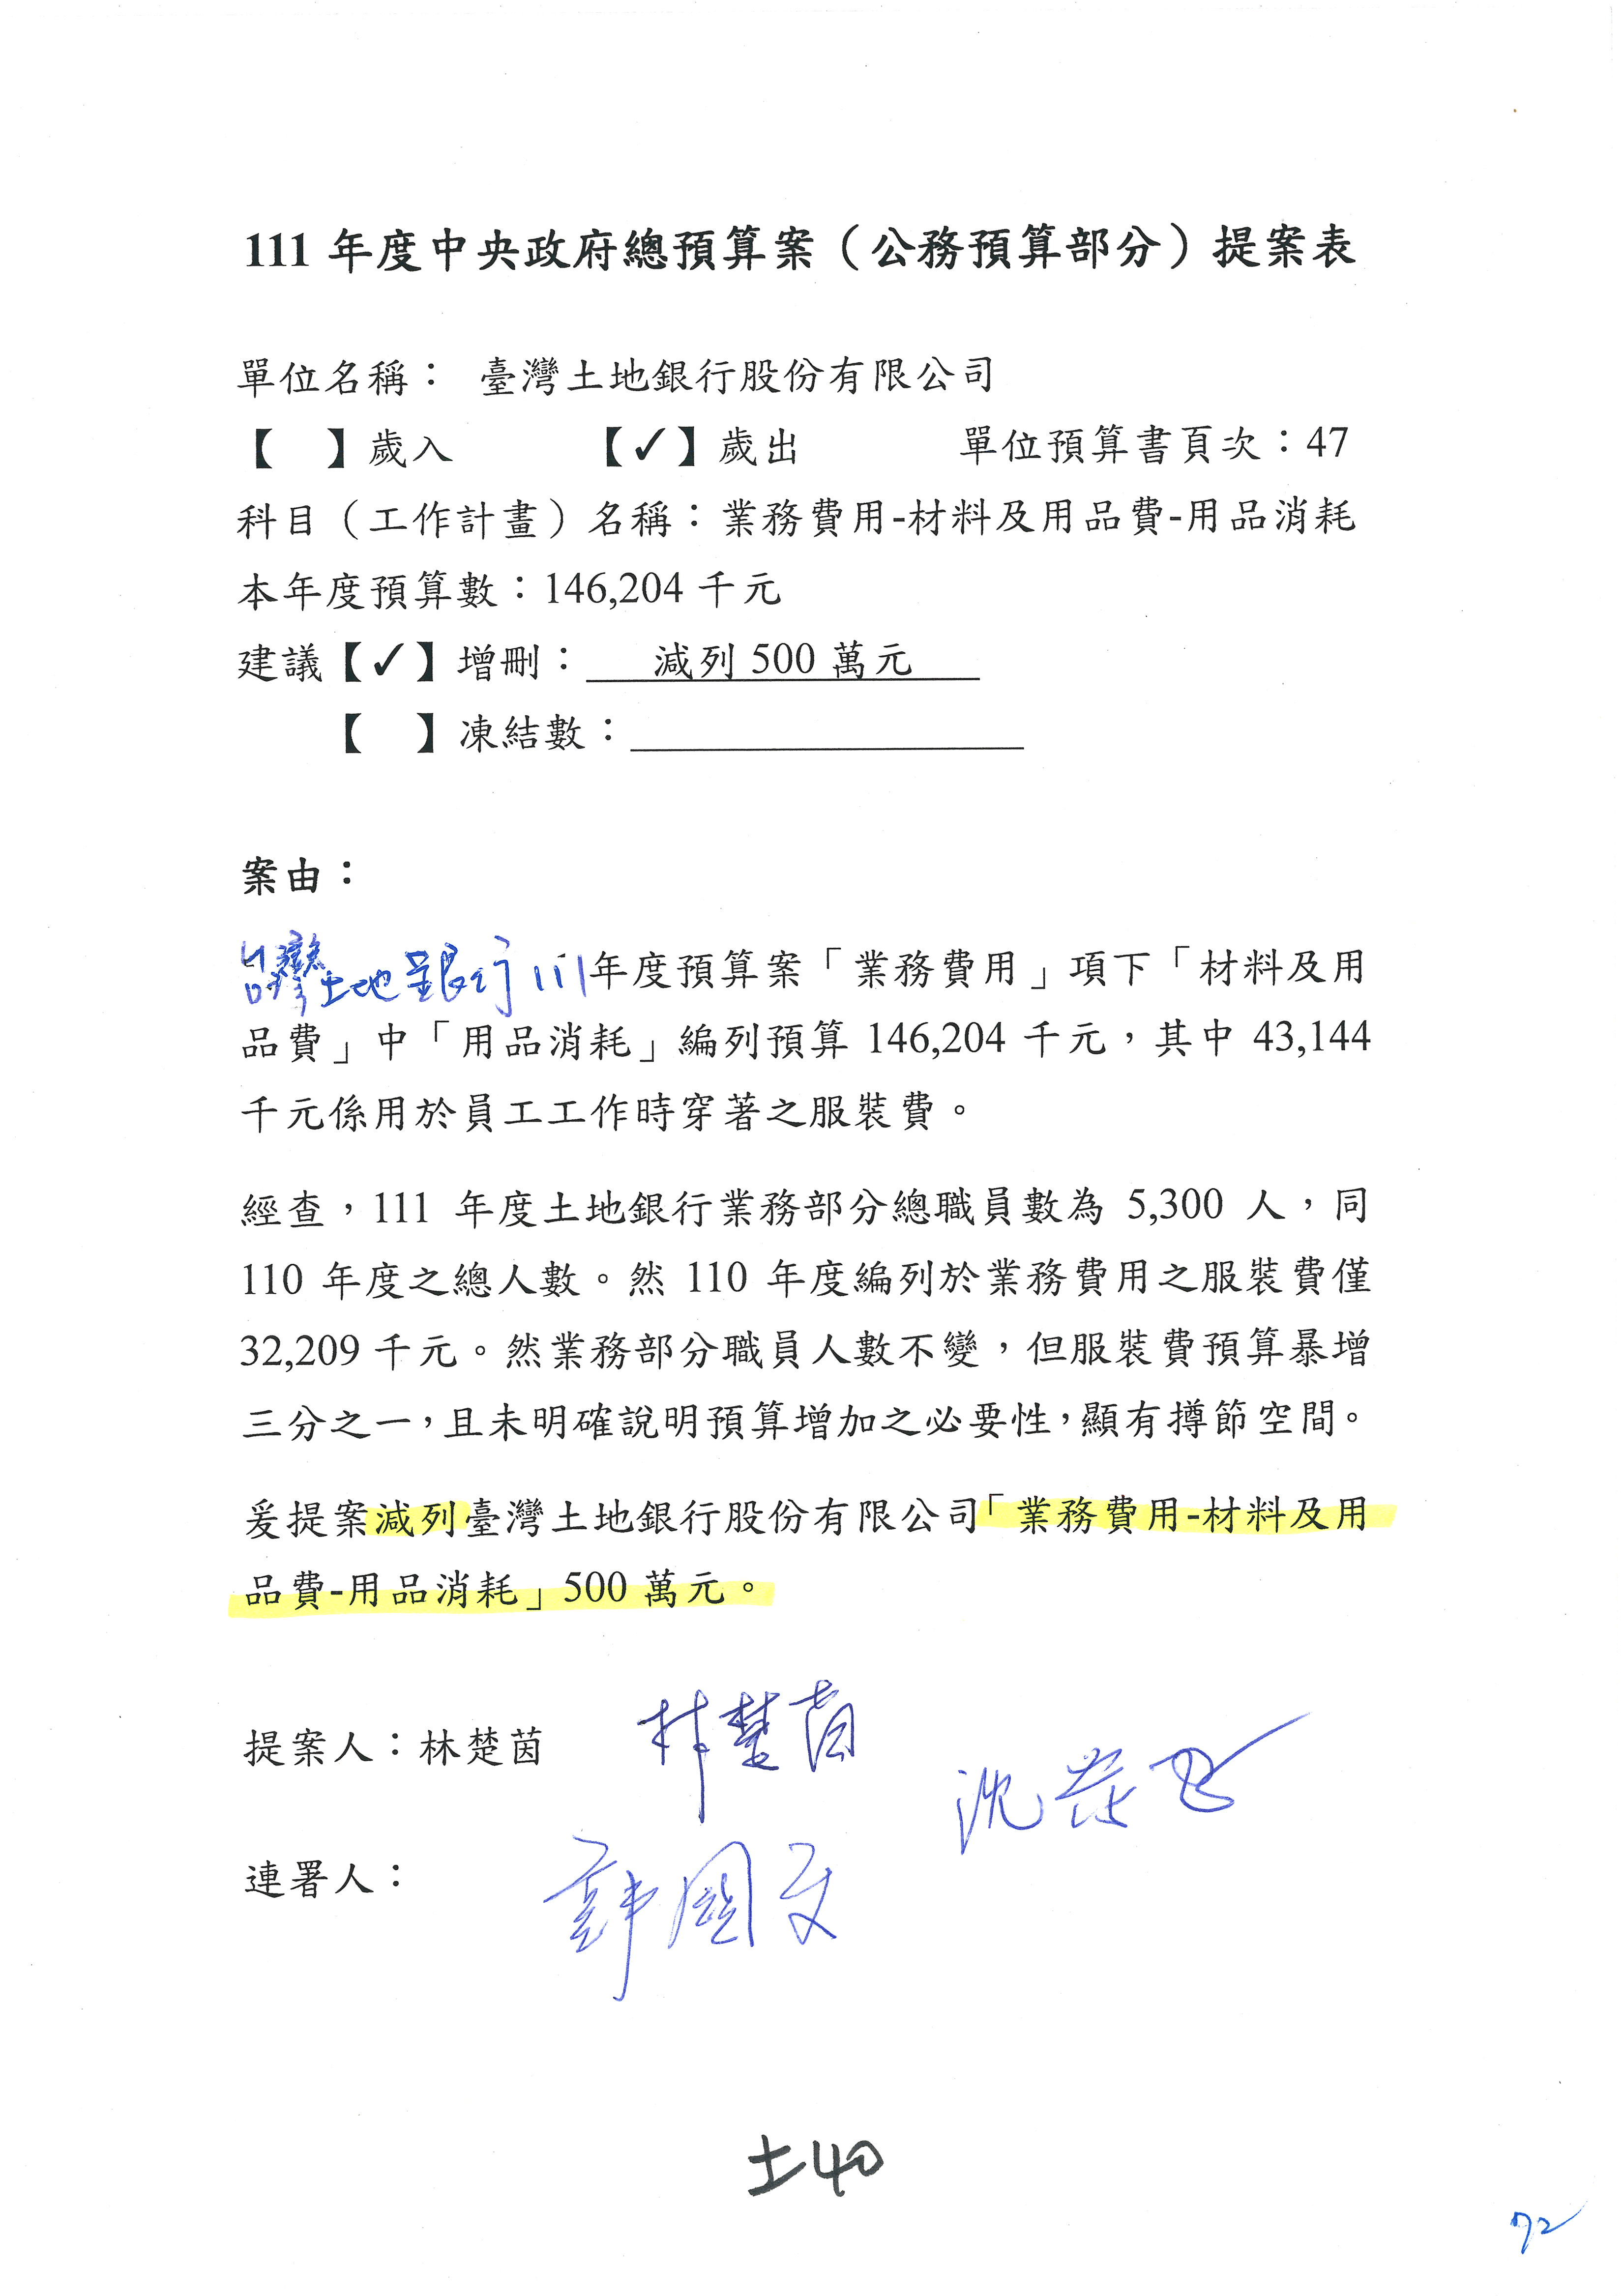 111 年度中央政府總預算案（公務預算部分）提案表
單位名稱： 臺灣土地銀行股份有限公司
【 】歲入 【✓】歲出 單位預算書頁次：47
科目（工作計畫）名稱：業務費用-材料及用品費-用品消耗
本年度預算數：146,204 千元
建議【✓】增刪： 減列 500 萬元
【 】凍結數：
案由：
台灣土地銀行111年度預算案「業務費用」項下「材料及用
品費」中「用品消耗」編列預算 146,204 千元，其中 43,144
千元係用於員工工作時穿著之服裝費。
經查，111 年度土地銀行業務部分總職員數為 5,300 人，同
110 年度之總人數。然 110 年度編列於業務費用之服裝費僅
32,209 千元。然業務部分職員人數不變，但服裝費預算暴增
三分之一，且未明確說明預算增加之必要性，顯有撙節空間。
爰提案減列臺灣土地銀行股份有限公司「業務費用-材料及用
品費-用品消耗」500 萬元。
提案人：林楚茵 林楚茵
連署人：
土40
72